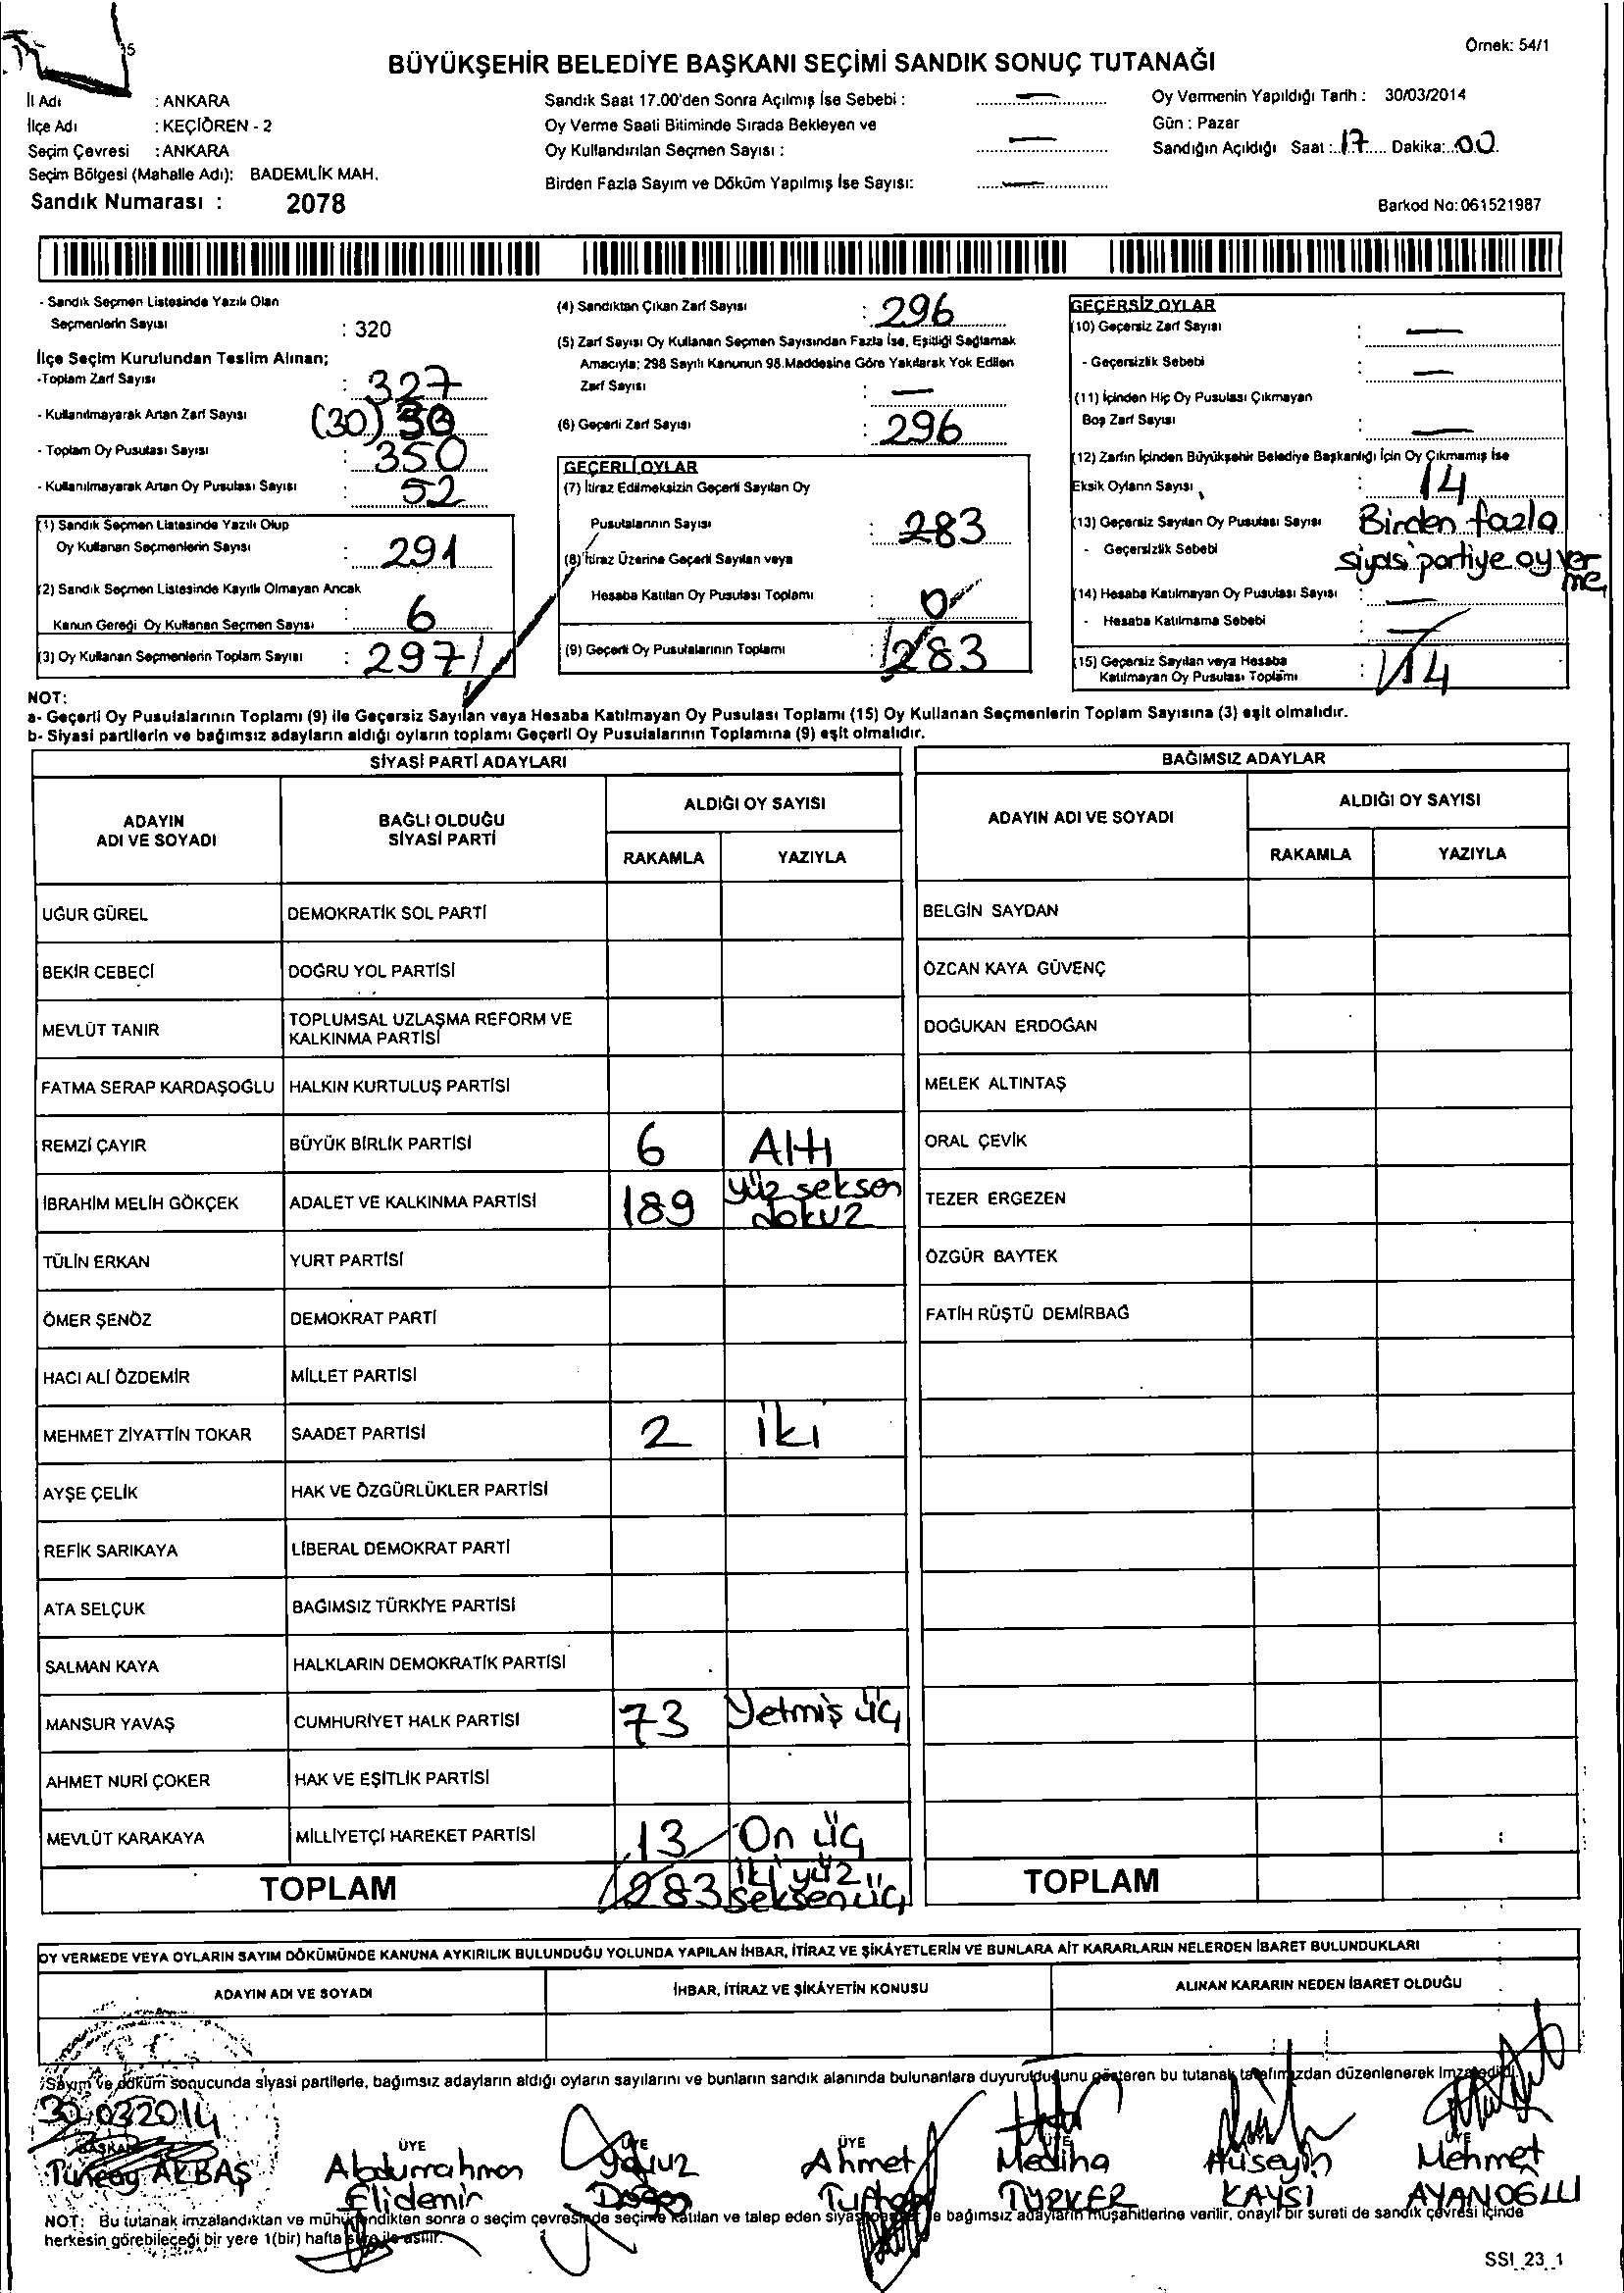 Örnek: 54/1
BÜYÜKŞEHİR BELEDİYE BAŞKANI SEÇİMİ SANDIK SONUÇ TUTANAĞI
İl Adı : ANKARA
İlçe Adı : KEÇİÖREN - 2
Seçim Çevresi : ANKARA
Seçim Bölgesi (Mahalle Adı): BADEMLİK MAH.
Sandık Numarası : 2078
Sandık Saat 17.00'den Sonra Açılmış İse Sebebi : —
Oy Verme Saati Bitiminde Sırada Bekleyen ve
Oy Kullandırılan Seçmen Sayısı : —
Birden Fazla Sayım ve Döküm Yapılmış İse Sayısı: —
Oy Vermenin Yapıldığı Tarih : 30/03/2014
Gün : Pazar
Sandığın Açıldığı Saat : 17 Dakika: 00
Barkod No: 061521987
- Sandık Seçmen Listesinde Yazılı Olan
Seçmenlerin Sayısı : 320
İlçe Seçim Kurulundan Teslim Alınan;
-Toplam Zarf Sayısı : 327
- Kullanılmayarak Artan Zarf Sayısı (30) 30
- Toplam Oy Pusulası Sayısı : 350
- Kullanılmayarak Artan Oy Pusulası Sayısı : 52
(1) Sandık Seçmen Listesinde Yazılı Olup
Oy Kullanan Seçmenlerin Sayısı : 291
(2) Sandık Seçmen Listesinde Kayıtlı Olmayan Ancak
Kanun Gereği Oy Kullanan Seçmen Sayısı : 6
(3) Oy Kullanan Seçmenlerin Toplam Sayısı : 297
(4) Sandıktan Çıkan Zarf Sayısı : 296
(5) Zarf Sayısı Oy Kullanan Seçmen Sayısından Fazla İse, Eşitliği Sağlamak
Amacıyla; 298 Sayılı Kanunun 98.Maddesine Göre Yakılarak Yok Edilen
Zarf Sayısı : —
(6) Geçerli Zarf Sayısı : 296
GEÇERLİ OYLAR
(7) İtiraz Edilmeksizin Geçerli Sayılan Oy
Pusulalarının Sayısı : 283
(8) İtiraz Üzerine Geçerli Sayılan veya
Hesaba Katılan Oy Pusulası Toplamı : 0
(9) Geçerli Oy Pusulalarının Toplamı : 283
GEÇERSİZ OYLAR
(10) Geçersiz Zarf Sayısı : —
- Geçersizlik Sebebi : —
(11) İçinden Hiç Oy Pusulası Çıkmayan
Boş Zarf Sayısı : —
(12) Zarfın İçinden Büyükşehir Belediye Başkanlığı İçin Oy Çıkmamış İse
Eksik Oyların Sayısı : 14
(13) Geçersiz Sayılan Oy Pusulası Sayısı Birden fazla
- Geçersizlik Sebebi siyasi partiye oy ver
me
(14) Hesaba Katılmayan Oy Pusulası Sayısı : —
- Hesaba Katılmama Sebebi : —
(15) Geçersiz Sayılan veya Hesaba
Katılmayan Oy Pusulası Toplamı : 14
NOT:
a- Geçerli Oy Pusulalarının Toplamı (9) ile Geçersiz Sayılan veya Hesaba Katılmayan Oy Pusulası Toplamı (15) Oy Kullanan Seçmenlerin Toplam Sayısına (3) eşit olmalıdır.
b- Siyasi partilerin ve bağımsız adayların aldığı oyların toplamı Geçerli Oy Pusulalarının Toplamına (9) eşit olmalıdır.
SİYASİ PARTİ ADAYLARI
ADAYIN
ADI VE SOYADI
BAĞLI OLDUĞU
SİYASİ PARTİ
ALDIĞI OY SAYISI
RAKAMLA YAZIYLA
UĞUR GÜREL DEMOKRATİK SOL PARTİ
BEKİR CEBECİ DOĞRU YOL PARTİSİ
MEVLÜT TANIR TOPLUMSAL UZLAŞMA REFORM VE
KALKINMA PARTİSİ
FATMA SERAP KARDAŞOĞLU HALKIN KURTULUŞ PARTİSİ
REMZİ ÇAYIR BÜYÜK BİRLİK PARTİSİ 6 Altı
İBRAHİM MELİH GÖKÇEK ADALET VE KALKINMA PARTİSİ 189 yüz seksen
dokuz
TÜLİN ERKAN YURT PARTİSİ
ÖMER ŞENÖZ DEMOKRAT PARTİ
HACI ALİ ÖZDEMİR MİLLET PARTİSİ
MEHMET ZİYATTİN TOKAR SAADET PARTİSİ 2 iki
AYŞE ÇELİK HAK VE ÖZGÜRLÜKLER PARTİSİ
REFİK SARIKAYA LİBERAL DEMOKRAT PARTİ
ATA SELÇUK BAĞIMSIZ TÜRKİYE PARTİSİ
SALMAN KAYA HALKLARIN DEMOKRATİK PARTİSİ
MANSUR YAVAŞ CUMHURİYET HALK PARTİSİ 73 Yetmiş üç
AHMET NURİ ÇOKER HAK VE EŞİTLİK PARTİSİ
MEVLÜT KARAKAYA MİLLİYETÇİ HAREKET PARTİSİ 13 On üç
TOPLAM 283 iki yüz
seksen üç
BAĞIMSIZ ADAYLAR
ADAYIN ADI VE SOYADI
ALDIĞI OY SAYISI
RAKAMLA YAZIYLA
BELGİN SAYDAN
ÖZCAN KAYA GÜVENÇ
DOĞUKAN ERDOĞAN
MELEK ALTINTAŞ
ORAL ÇEVİK
TEZER ERGEZEN
ÖZGÜR BAYTEK
FATİH RÜŞTÜ DEMİRBAĞ
TOPLAM
OY VERMEDE VEYA OYLARIN SAYIM DÖKÜMÜNDE KANUNA AYKIRILIK BULUNDUĞU YOLUNDA YAPILAN İHBAR, İTİRAZ VE ŞİKÂYETLERİN VE BUNLARA AİT KARARLARIN NELERDEN İBARET BULUNDUKLARI
ADAYIN ADI VE SOYADI İHBAR, İTİRAZ VE ŞİKÂYETİN KONUSU ALINAN KARARIN NEDEN İBARET OLDUĞU
Sayım ve döküm sonucunda siyasi partilerle, bağımsız adayların aldığı oyların sayılarını ve bunların sandık alanında bulunanlara duyurulduğunu gösteren bu tutanak tarafımızdan düzenlenerek imzaedildi.
30.03.2014
BAŞKAN ÜYE ÜYE ÜYE ÜYE ÜYE
Tuncay AKBAŞ Abdurrahman Oğuz Ahmet Mediha Hüseyin Mehmet
Elidemir Doğan TÜRKER KAYSI AYANOĞLU
NOT: Bu tutanak imzalandıktan ve mühürlendikten sonra o seçim çevresinde seçime katılan ve talep eden siyasi partiler ile bağımsız adayların müşahitlerine verilir, onaylı bir sureti de sandık çevresi içinde
herkesin görebileceği bir yere 1(bir) hafta süre ile asılır.
SSI_23_1